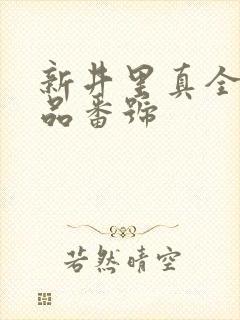 新井里真全
品番號
若然晴空